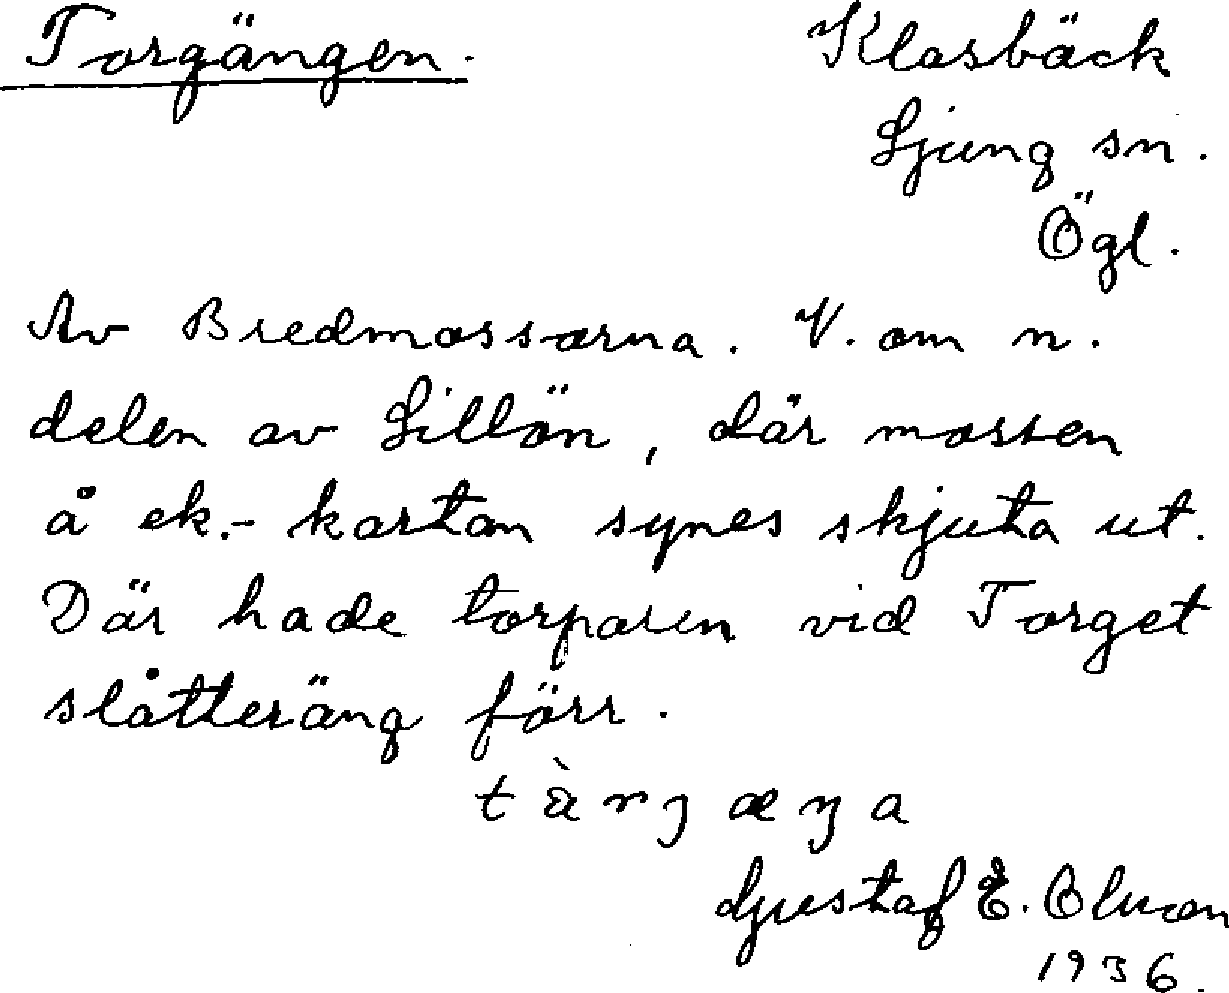 Torgängen.
Klasbäck
Ljung sn.
Ögl.
Av Bredmossarna. V. om n.
delen av Lillön, där mossen
å ek.-kartan synes skjuta ut.
Där hade torparen vid Torget
slåtteräng förr.
Gustaf E. Olsson
1936.